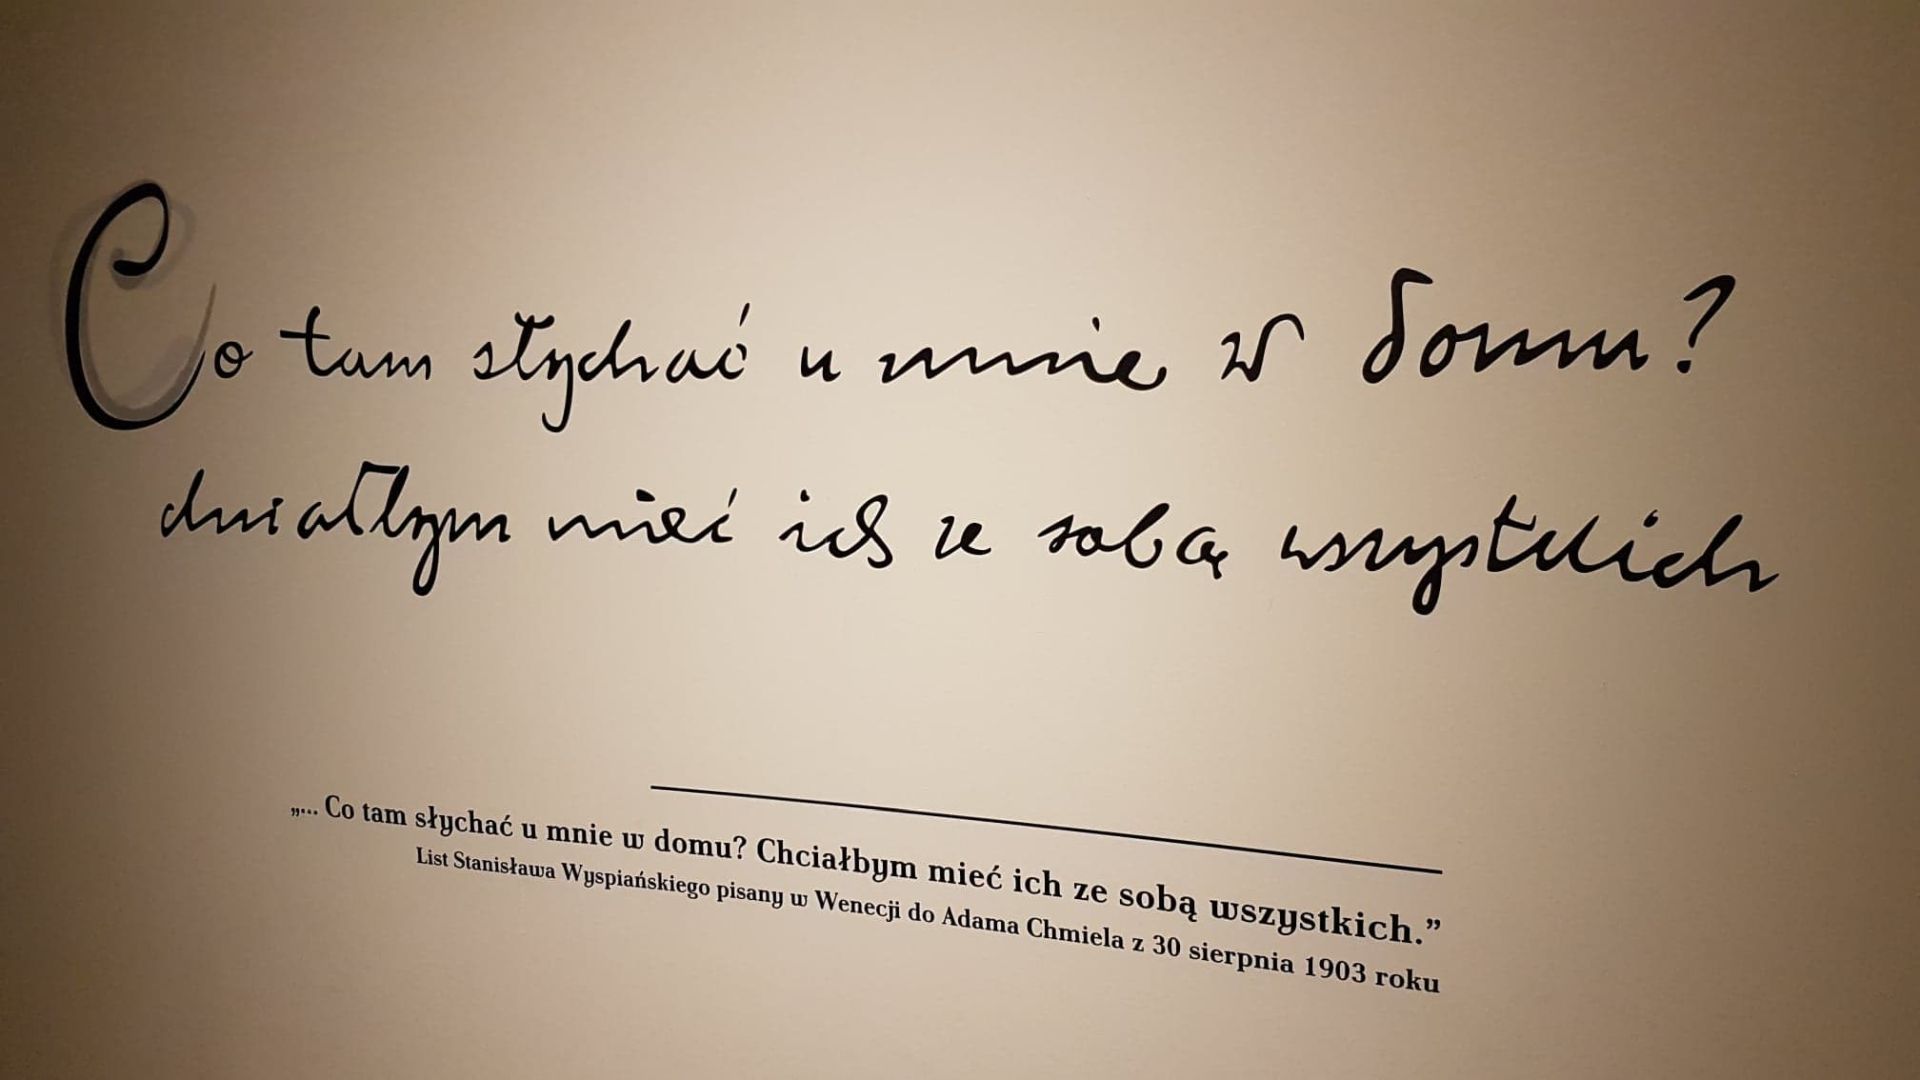 Co tam słychać u mnie w domu?
chciałbym mieć ich ze sobą wszystkich
„... Co tam słychać u mnie w domu? Chciałbym mieć ich ze sobą wszystkich.”
List Stanisława Wyspiańskiego pisany w Wenecji do Adama Chmiela z 30 sierpnia 1903 roku